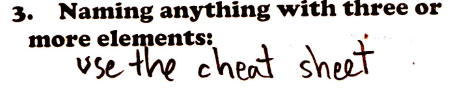 3. Naming anything with three or
more elements:
use the cheat sheet